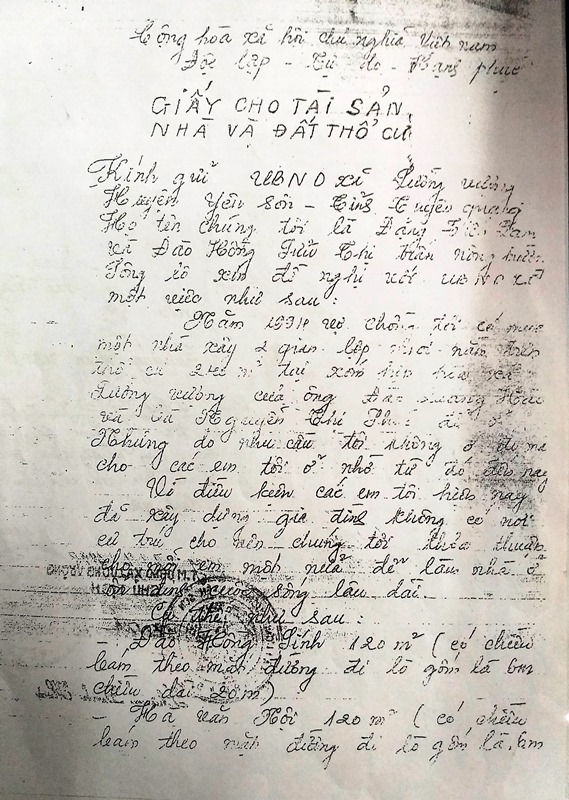 Cộng hòa xã hội chủ nghĩa Việt nam
Độc lập - Tự do - Hạnh phúc
GIẤY CHO TÀI SẢN
NHÀ VÀ ĐẤT THỔ CƯ
Kính gửi UBND xã Lưỡng vượng
Huyện Yên sơn - Tỉnh Tuyên quang
Họ tên chúng tôi là Đặng
và Đào Hồng
xin đề nghị với UBND xã
một việc như sau:
Năm 1991 vợ chồng tôi có mua
một nhà xây 2 gian lợp trên
thổ cư 240 m² tại xóm xã
Lưỡng vượng của ông Đào Hải
và bà Nguyễn Thị để ở
Nhưng do nhu cầu tôi không ở đó mà
cho các em tôi ở nhờ từ đó đến nay
Vì điều kiện các em tôi hiện nay
đã xây dựng gia đình không có nơi
cư trú cho nên chúng tôi thỏa thuận
cho mỗi em một nửa để làm nhà ở
ổn định cuộc sống lâu dài.
Cụ thể như sau:
- Đào Hồng Tính 120 m² (có chiều
bám theo mặt đường đi lò gốm là 6m
chiều dài 20m)
- Hà văn Hội 120 m² (có chiều
bám theo mặt đường đi lò gốm là 6m